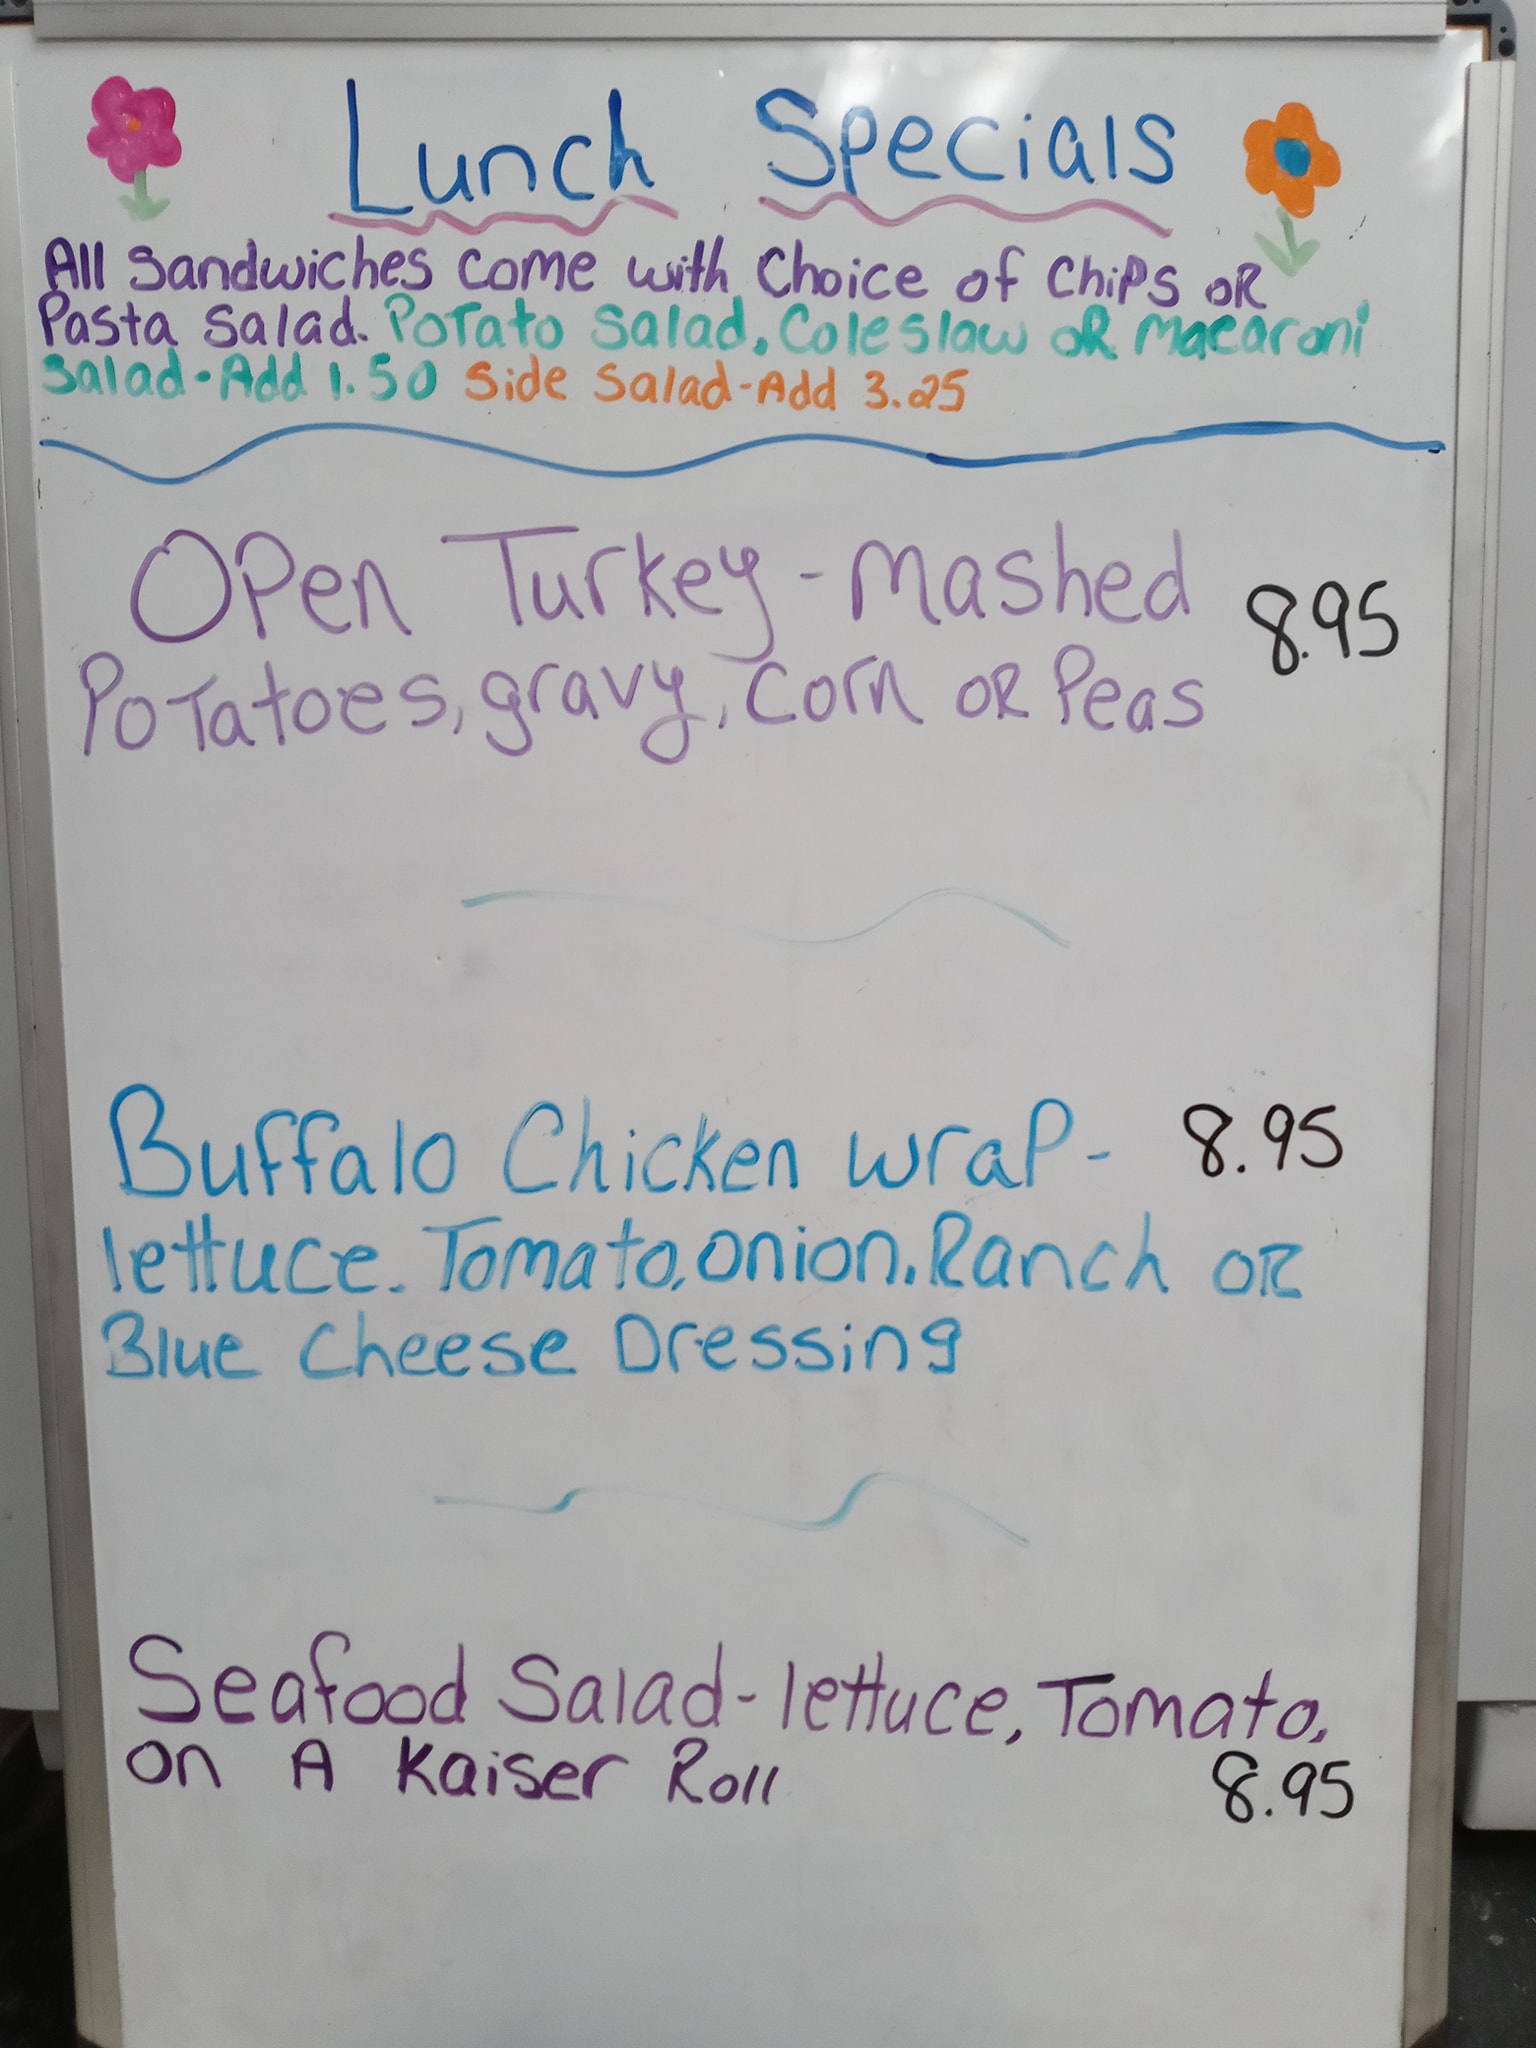 Lunch Specials
All Sandwiches Come with Choice of Chips OR
Pasta Salad. Potato Salad, Coleslaw OR Macaroni
Salad-Add 1.50 Side Salad-Add 3.25
Open Turkey-Mashed
Potatoes, gravy, Corn OR Peas
8.95
Buffalo Chicken Wrap- 8.95
lettuce. Tomato, Onion, Ranch OR
Blue Cheese Dressing
Seafood Salad-lettuce, Tomato,
On A Kaiser Roll
8.95